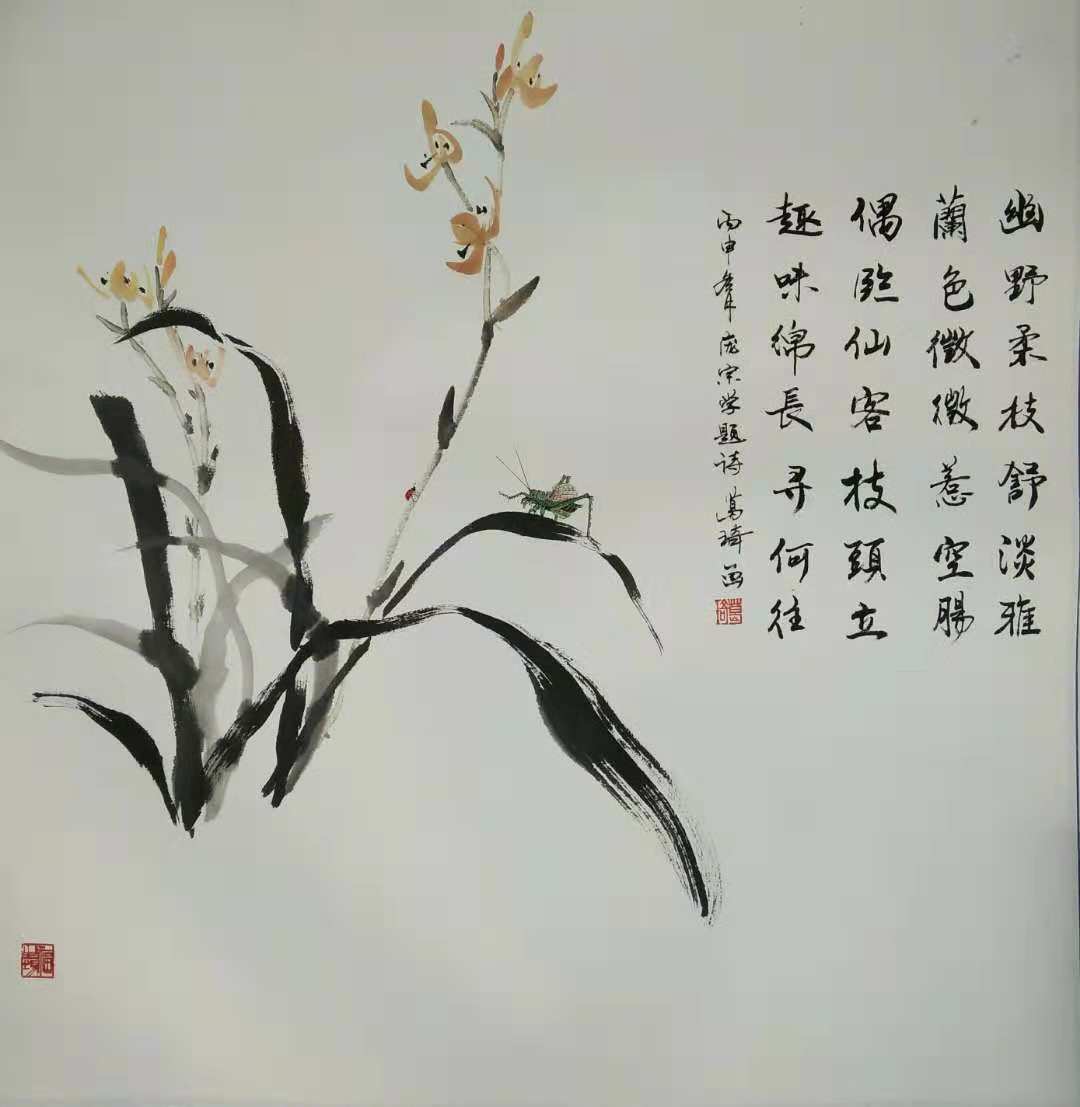 幽野柔枝舒淡雅
蘭色微微惹空腸
偶臨仙客枝頭立
趣味綿長尋何往
丙申年庞宗学題诗葛琦画